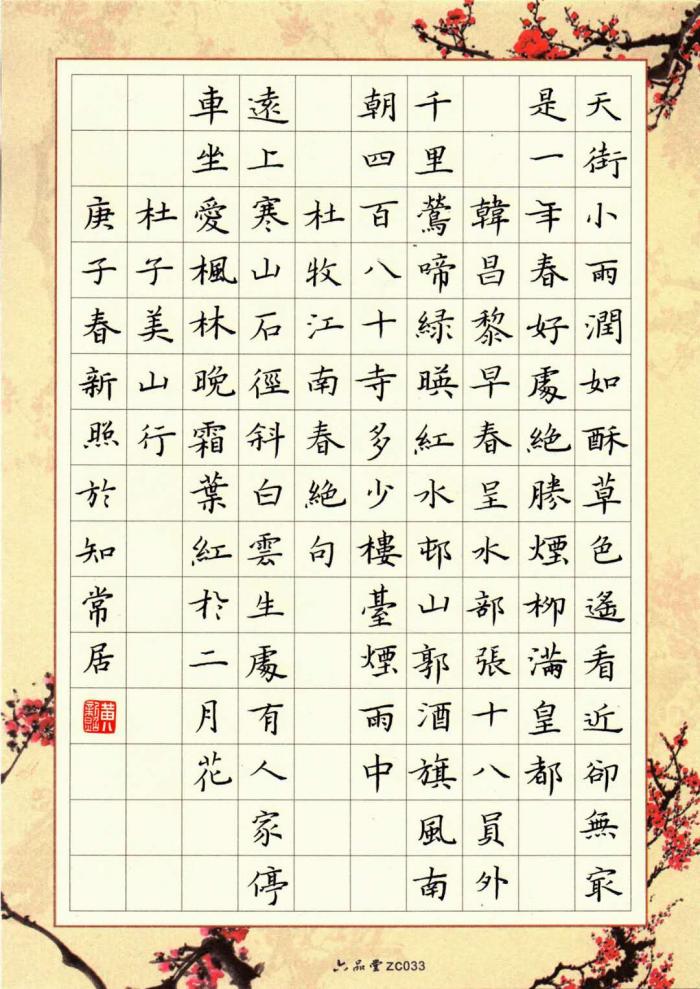 天街小雨潤如酥草色遙看近卻無㝡
是一年春好處絕勝煙柳滿皇都
韓昌黎早春呈水部張十八員外
千里鶯啼綠暎紅水邨山郭酒旗風南
朝四百八十寺多少樓臺煙雨中
杜牧江南春絕句
遠上寒山石徑斜白雲生處有人家停
車坐愛楓林晚霜葉紅於二月花
杜子美山行
庚子春新照於知常居
六品堂 ZC033